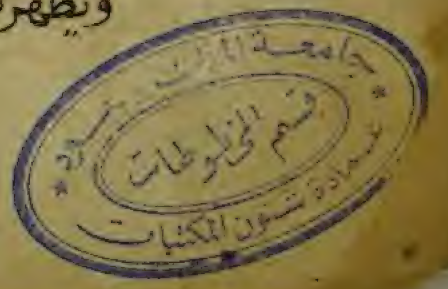 ويظهر
جامعة الملك سعود
قسم المخطوطات
عمادة شئون المكتبات